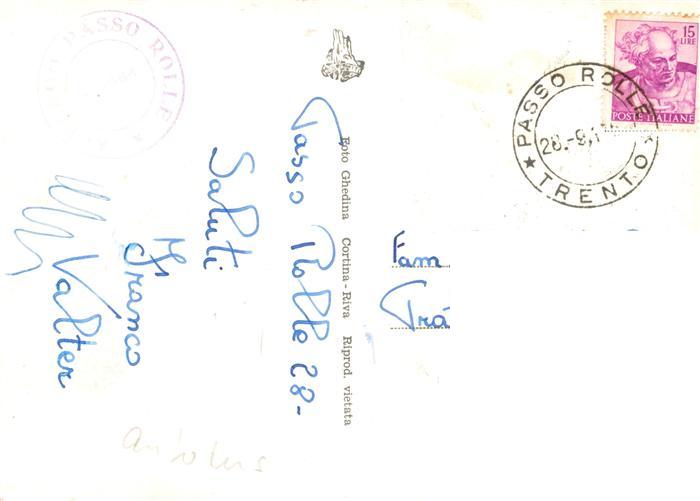 PASSO ROLLE
15
LIRE
POSTE ITALIANE
PASSO ROLLE
28.-8.1
TRENTO
Foto Ghedina Cortina - Riva Riprod. vietata
Passo Rolle 28-
Saluti
Franco
Valter
Fam